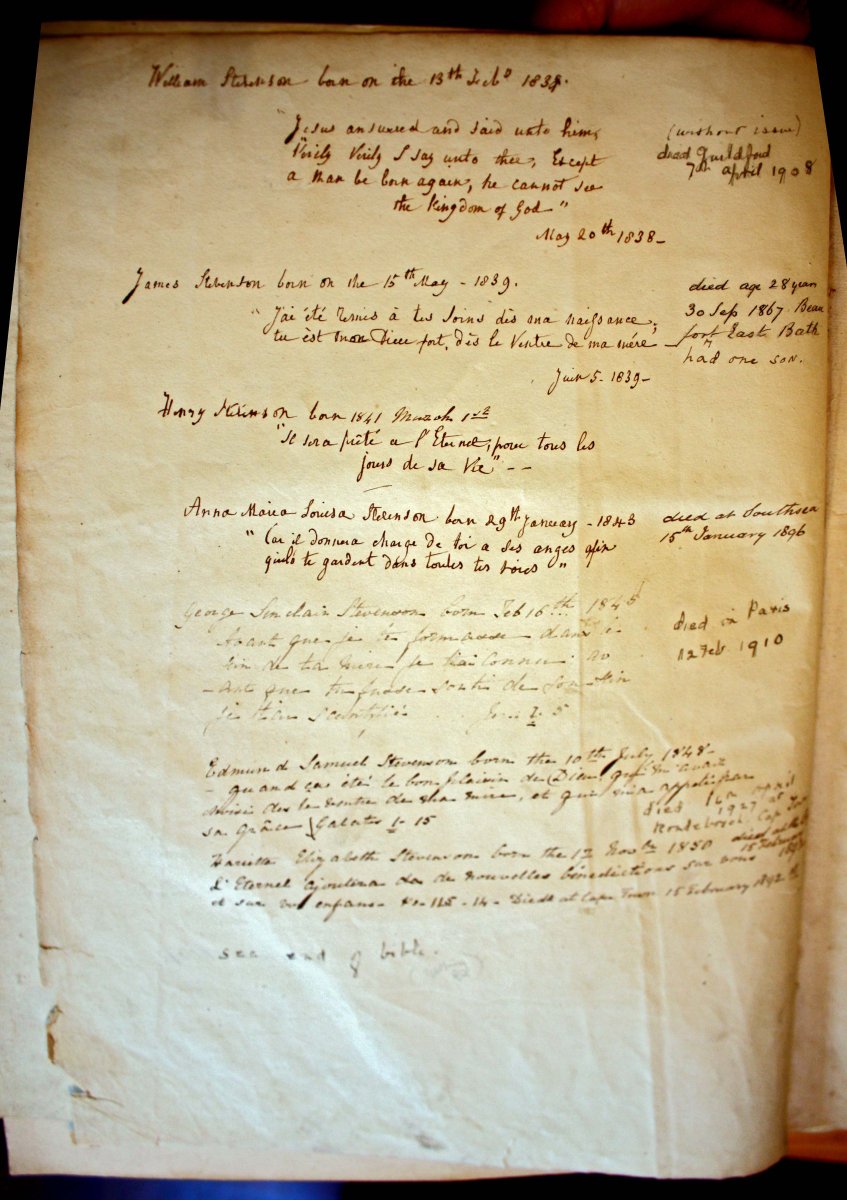 William Stevenson born on the 13th Feb. 1838.
"Jesus answered and said unto him,
Verily Verily I say unto thee, Except
a man be born again, he cannot see
the Kingdom of God"
May 20th 1838-
(without issue)
died Guildford
7th april 1908
James Stevenson born on the 15th May - 1839.
"J'ai été remis à tes soins dès ma naissance,
tu èst mon Dieu fort, dès le Ventre de ma mère -
Juin 5. 1839-
died age 28 years
30 Sep 1867. Beau
fort East Bath
had one son.
Henry Stevenson born 1841 March 1st
"Il sera prêté a l'Eternel, pour tous les
jours de sa Vie" - -
Anna Maria Louisa Stevenson born 29th January - 1843
"Car il donnera charge de toi a ses anges afin
qu'ils te gardent dans toutes tes voies"
died at Southsea
15th January 1896
George Sinclair Stevenson born Feb 16th 1845
Avant que je te formasse dans le
sein de ta mère je t'ai connu: av
-ant que tu fusse sorti de son sein
je t'ai Jer. 1. 5
died in Paris
12 Feb 1910
Edmund Samuel Stevenson born the 10th July 1848-
- quand ça été le bon plaisir de Dieu qui m'avait
choisi dès le ventre de ma mère, et qui m'a appelé par
sa Grâce Galates 1- 15
died 16th April
1927 at
Rondebosch Cape Town
Harietta Elizabeth Stevenson born the 17 Novbr 1850
L'Eternel ajoutera de nouvelles bénédictions sur vous
et sur vos enfans- Ps- 115-14- Died at Cape Town 15 February 1892
died at
15 February
see end of bible.